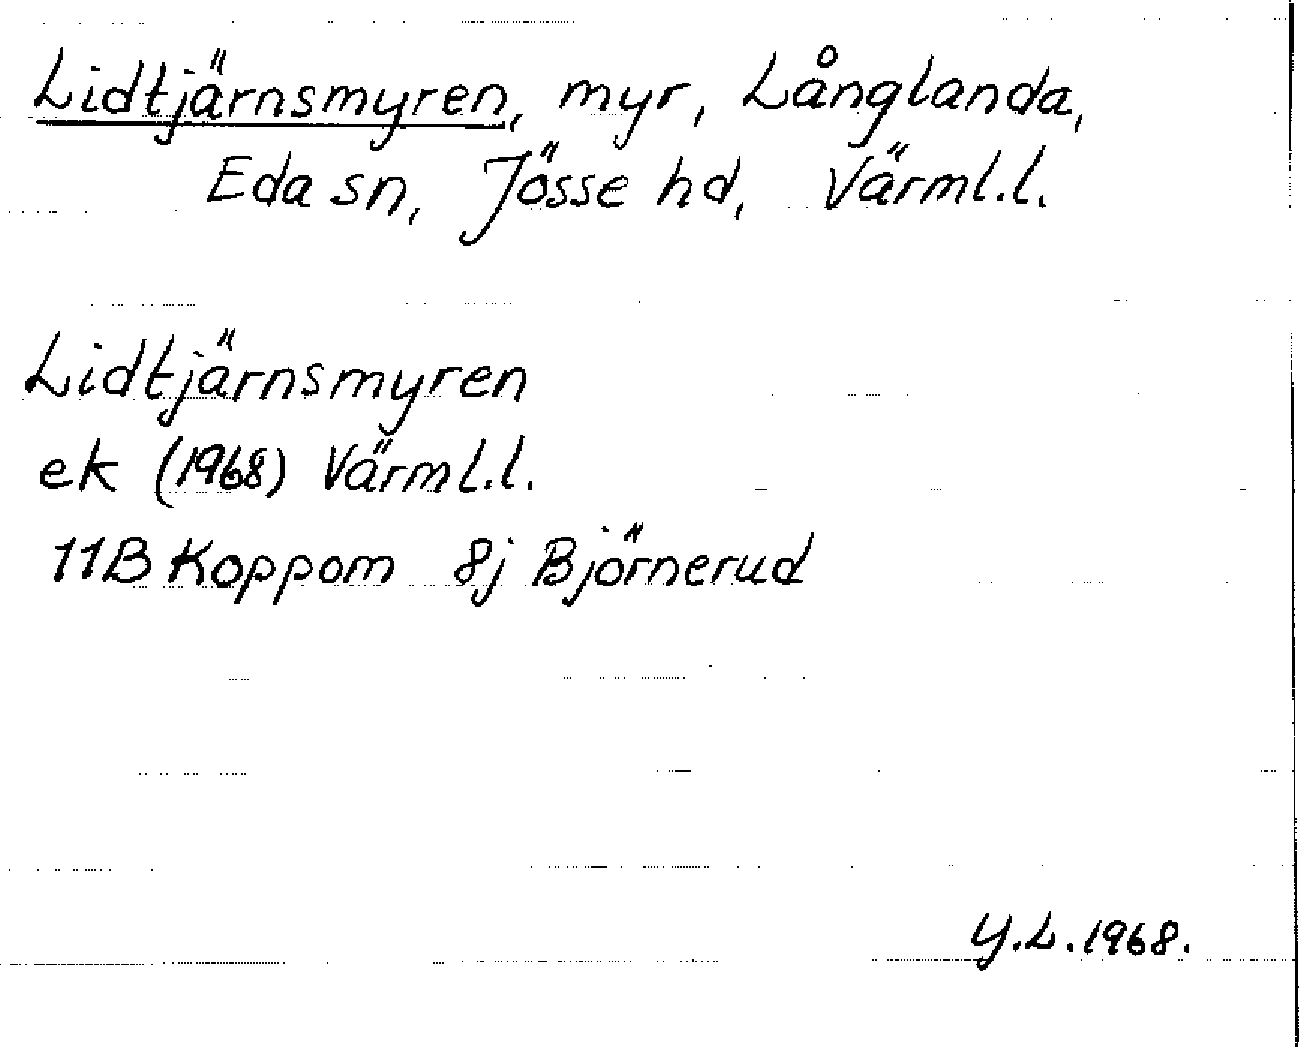 Lidtjärnsmyren, myr, Långlanda,
Eda sn, Jösse hd, Värml.l.
Lidtjärnsmyren
ek (1968) Värml.l.
11B Koppom 8j Björnerud
Y.L. 1968.